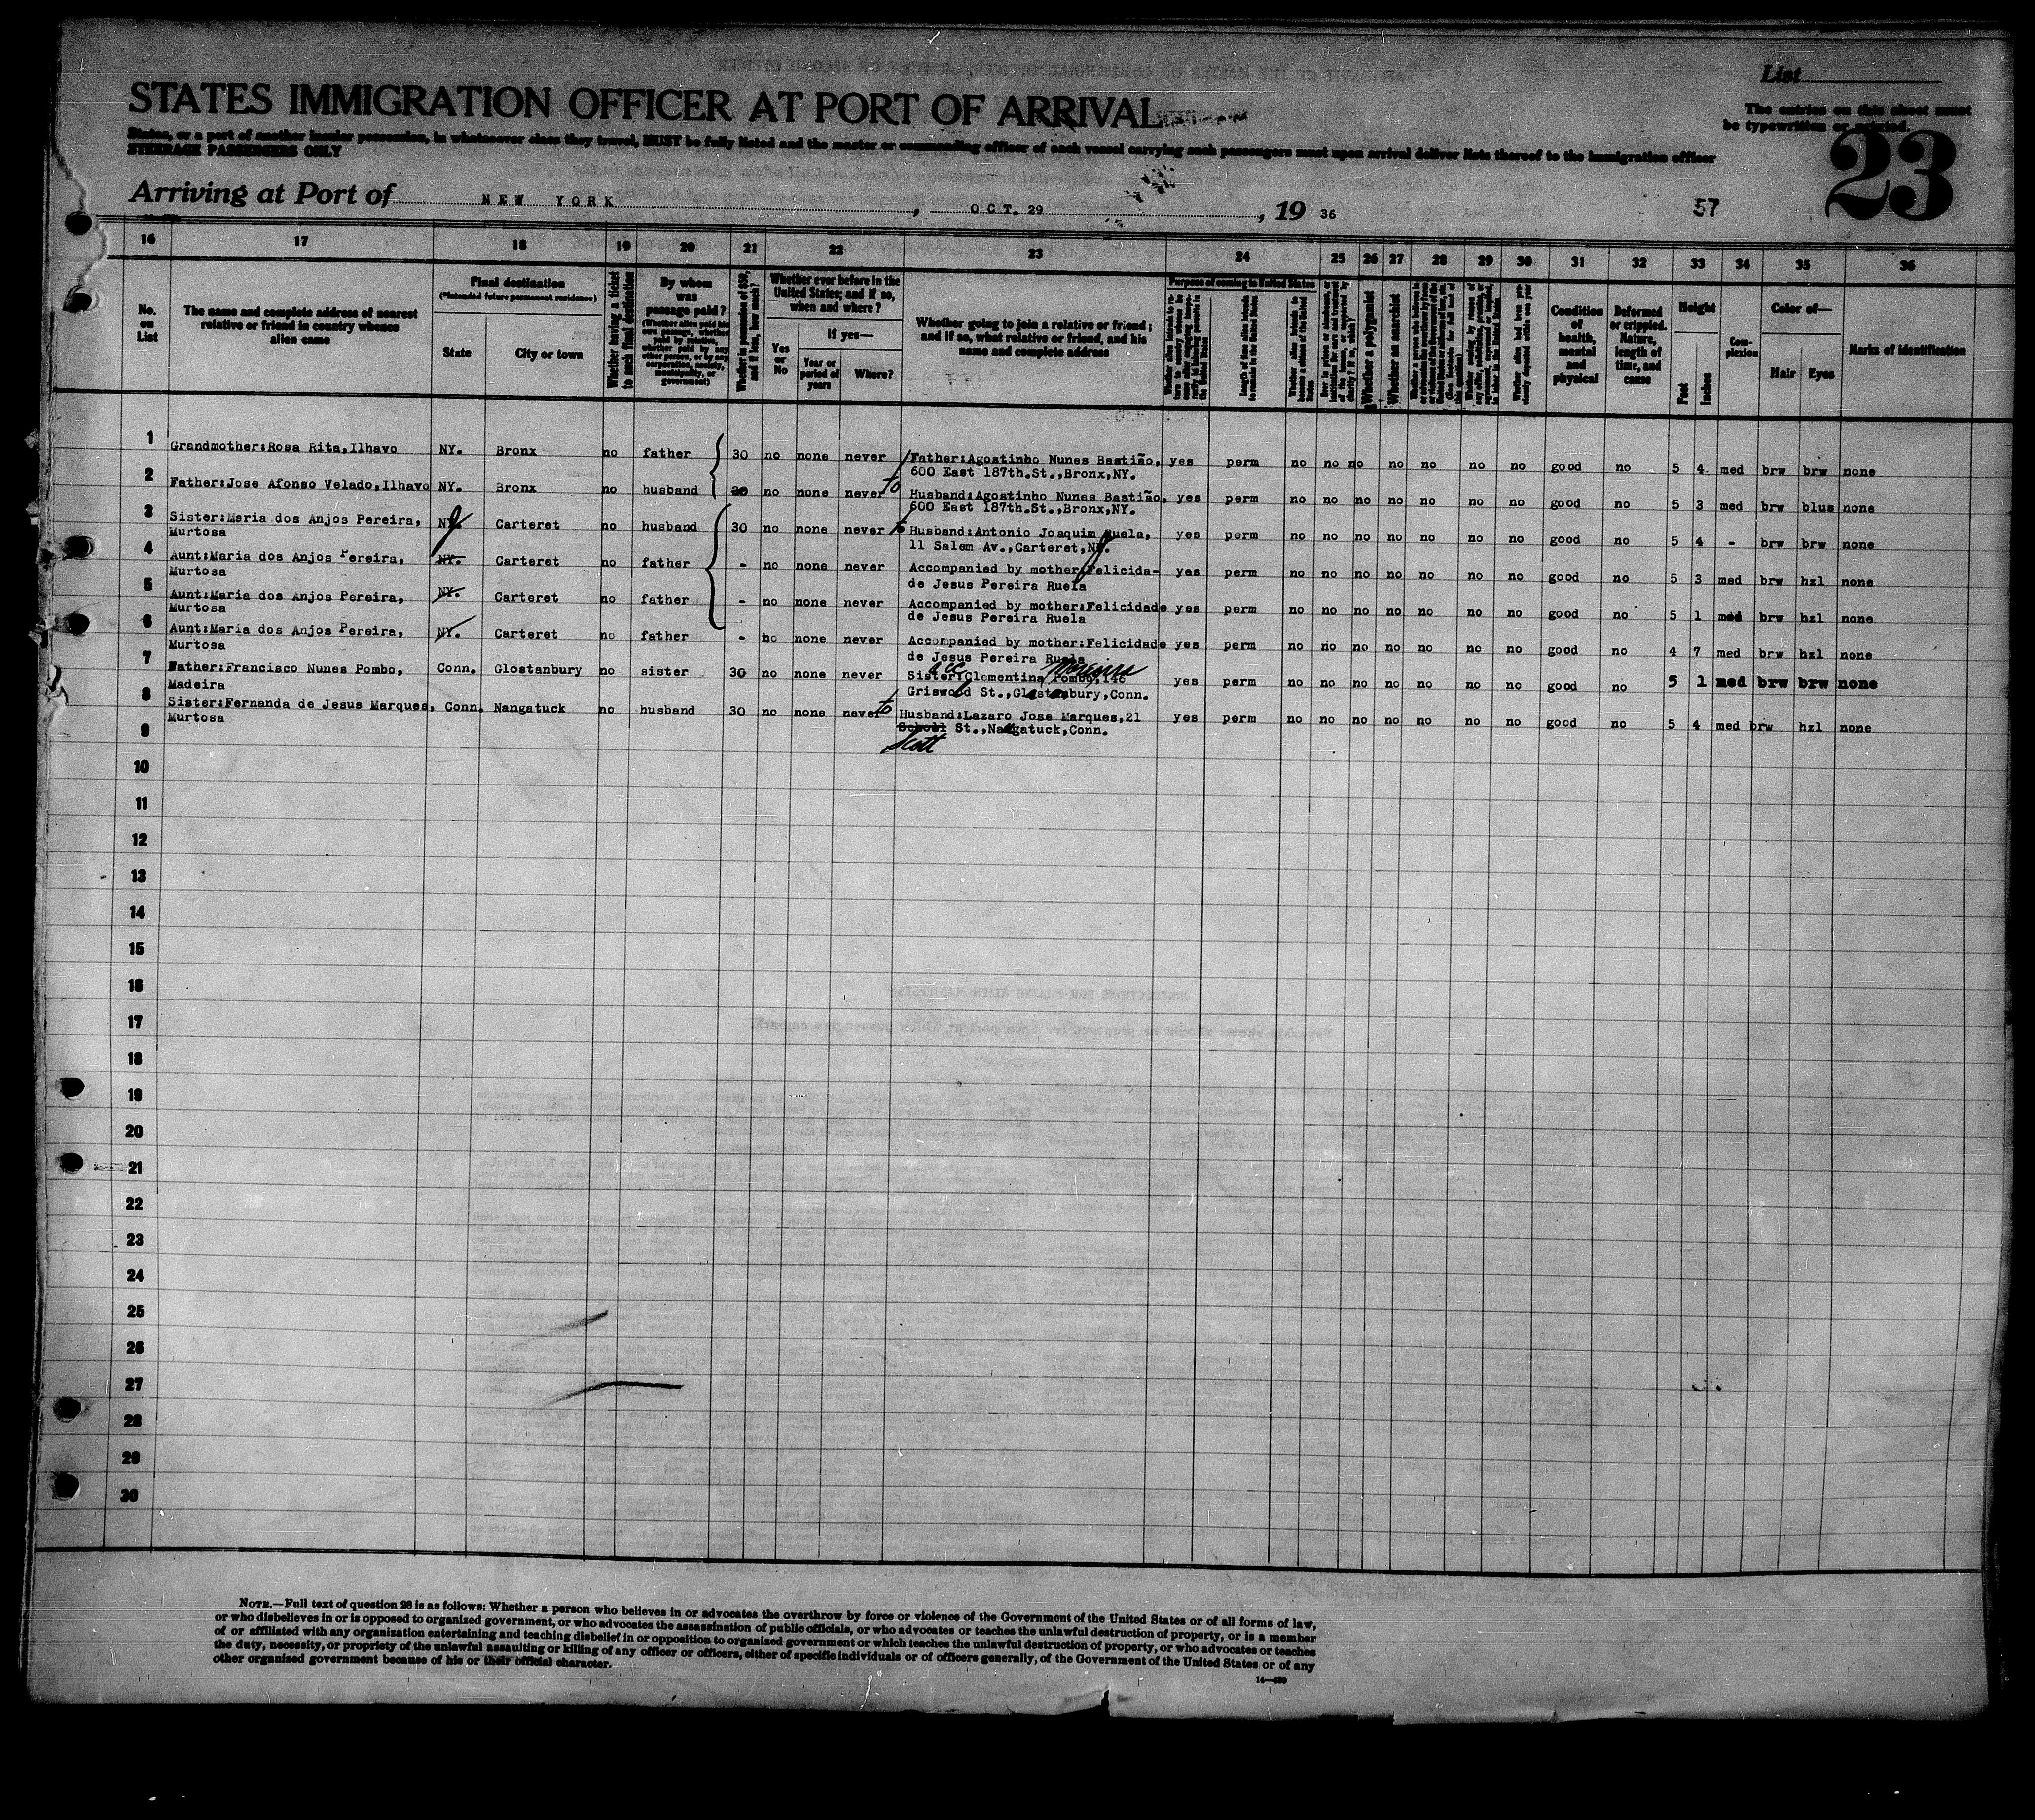 List
STATES IMMIGRATION OFFICER AT PORT OF ARRIVAL
The entries on this sheet must
be typewritten or printed.
States, or a part of another insular possession, in whatsoever class they travel, MUST be fully listed and the master or commanding officer of each vessel carrying such passengers must upon arrival deliver lists thereof to the immigration officer
STEERAGE PASSENGERS ONLY
23
Arriving at Port of NEW YORK, OCT. 29, 19 36
57
16 17 18 19 20 21 22 23 24 25 26 27 28 29 30 31 32 33 34 35 36
No. on List
The name and complete address of nearest relative or friend in country whence alien came
Final destination
(*Intended future permanent residence)
State
City or town
Whether having a ticket to such final destination
By whom was passage paid?
(Whether alien paid his own passage, whether paid by relative, whether paid by any other person, or by any corporation, society, municipality, or government)
Whether in possession of $50, and if less, how much?
Whether ever before in the United States; and if so, when and where?
Yes or No
If yes—
Year or period of years
Where?
Whether going to join a relative or friend; and if so, what relative or friend, and his name and complete address
Purpose of coming to United States
Length of time alien intends to remain in the United States
Whether alien intends to become a citizen of the United States
Whether a polygamist
Whether an anarchist
Condition of health, mental and physical
Deformed or crippled. Nature, length of time, and cause
Height
Feet
Inches
Complexion
Color of—
Hair
Eyes
Marks of identification
1 Grandmother:Rosa Rita,Ilhavo NY. Bronx no father 30 no none never Father:Agostinho Nunes Bastião, yes perm no no no no no no no good no 5 4 med brw brw none
600 East 187th.St.,Bronx,NY.
2 Father:Jose Afonso Velado,Ilhavo NY. Bronx no husband 30 no none never to Husband:Agostinho Nunes Bastião, yes perm no no no no no no no good no 5 3 med brw blue none
600 East 187th St.,Bronx,NY.
3 Sister:Maria dos Anjos Pereira, NY. Carteret no husband 30 no none never to Husband:Antonio Joaquim Ruela, yes perm no no no no no no no good no 5 4 - brw brw none
Murtosa 11 Salem Av.,Carteret,NY.
4 Aunt:Maria dos Anjos Pereira, NY. Carteret no father - no none never Accompanied by mother:Felicida- yes perm no no no no no no no good no 5 3 med brw hzl none
Murtosa de Jesus Pereira Ruela
5 Aunt:Maria dos Anjos Pereira, NY. Carteret no father - no none never Accompanied by mother:Felicidade yes perm no no no no no no no good no 5 1 med brw hzl none
Murtosa de Jesus Pereira Ruela
6 Aunt:Maria dos Anjos Pereira, NY. Carteret no father - no none never Accompanied by mother:Felicidade yes perm no no no no no no no good no 4 7 med brw hzl none
Murtosa de Jesus Pereira Ruela
7 Father:Francisco Nunes Pombo, Conn. Glostanbury no sister 30 no none never Sister:Clementina Pombo,146 yes perm no no no no no no no good no 5 1 med brw brw none
Madeira Griswold St.,Glastanbury,Conn.
8 Sister:Fernanda de Jesus Marques, Conn. Nangatuck no husband 30 no none never to Husband:Lazaro Jose Marques,21 yes perm no no no no no no no good no 5 4 med brw hzl none
Murtosa School St.,Naugatuck,Conn.
Scott
9
10
11
12
13
14
15
16
17
18
19
20
21
22
23
24
25
26
27
28
29
30
NOTE.—Full text of question 28 is as follows: Whether a person who believes in or advocates the overthrow by force or violence of the Government of the United States or of all forms of law,
or who disbelieves in or is opposed to organized government, or who advocates the assassination of public officials, or who advocates or teaches the unlawful destruction of property, or is a member
of or affiliated with any organization entertaining and teaching disbelief in or opposition to organized government or which teaches the unlawful destruction of property, or who advocates or teaches
the duty, necessity, or propriety of the unlawful assaulting or killing of any officer or officers, either of specific individuals or of officers generally, of the Government of the United States or of any
other organized government because of his or their official character.